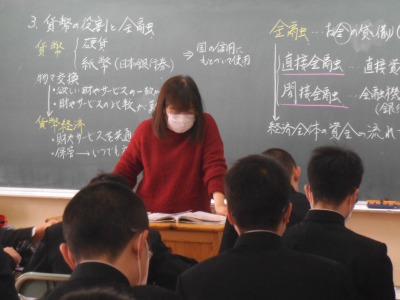 3. 貨幣の役割と金融
貨幣
硬貨
紙幣(日本銀行券)
⇒国の信用に
もとづいて使用
物々交換
・欲しい財やサービスの一致
・財やサービスの比較が
貨幣経済
・財やサービスを共通
・保管→いつでも
金融…お金の貸し借り
直接金融…直接
間接金融…金融機
(銀行
経済全体の資金の流れ